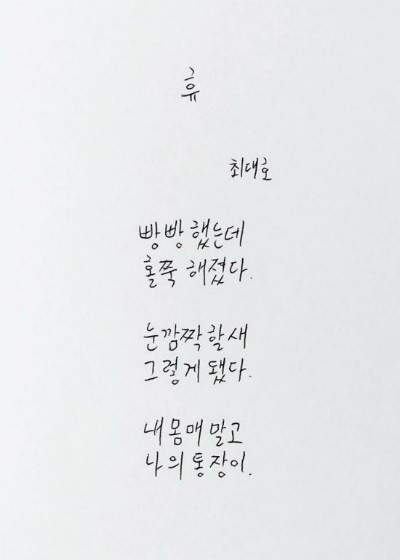 휴
최대호
빵빵 했는데
홀쭉 해졌다.
눈깜짝 할새
그렇게 됐다.
내 몸매 말고
나의 통장이.